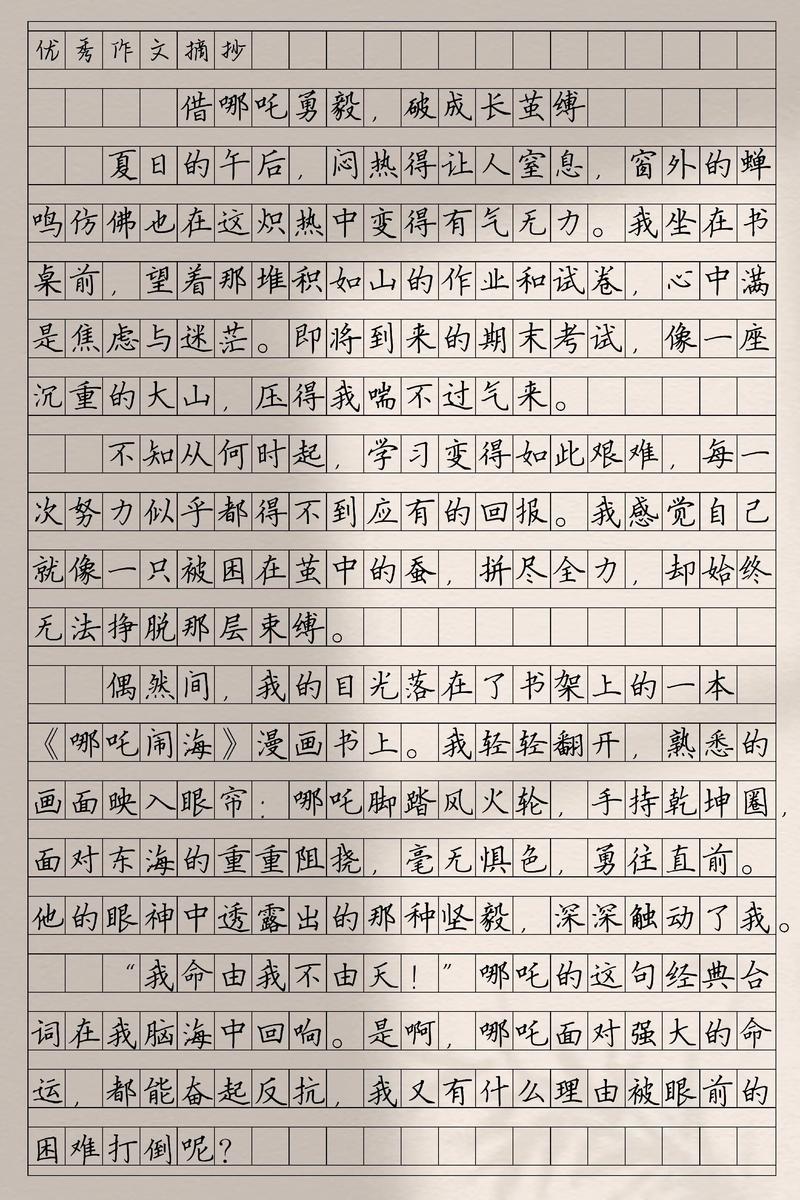 优秀作文摘抄
借哪吒勇毅，破成长茧缚
夏日的午后，闷热得让人窒息，窗外的蝉
鸣仿佛也在这炽热中变得有气无力。我坐在书
桌前，望着那堆积如山的作业和试卷，心中满
是焦虑与迷茫。即将到来的期末考试，像一座
沉重的大山，压得我喘不过气来。
不知从何时起，学习变得如此艰难，每一
次努力似乎都得不到应有的回报。我感觉自己
就像一只被困在茧中的蚕，拼尽全力，却始终
无法挣脱那层束缚。
偶然间，我的目光落在了书架上的一本
《哪吒闹海》漫画书上。我轻轻翻开，熟悉的
画面映入眼帘：哪吒脚踏风火轮，手持乾坤圈，
面对东海的重重阻挠，毫无惧色，勇往直前。
他的眼神中透露出的那种坚毅，深深触动了我。
“我命由我不由天！”哪吒的这句经典台
词在我脑海中回响。是啊，哪吒面对强大的命
运，都能奋起反抗，我又有什么理由被眼前的
困难打倒呢？